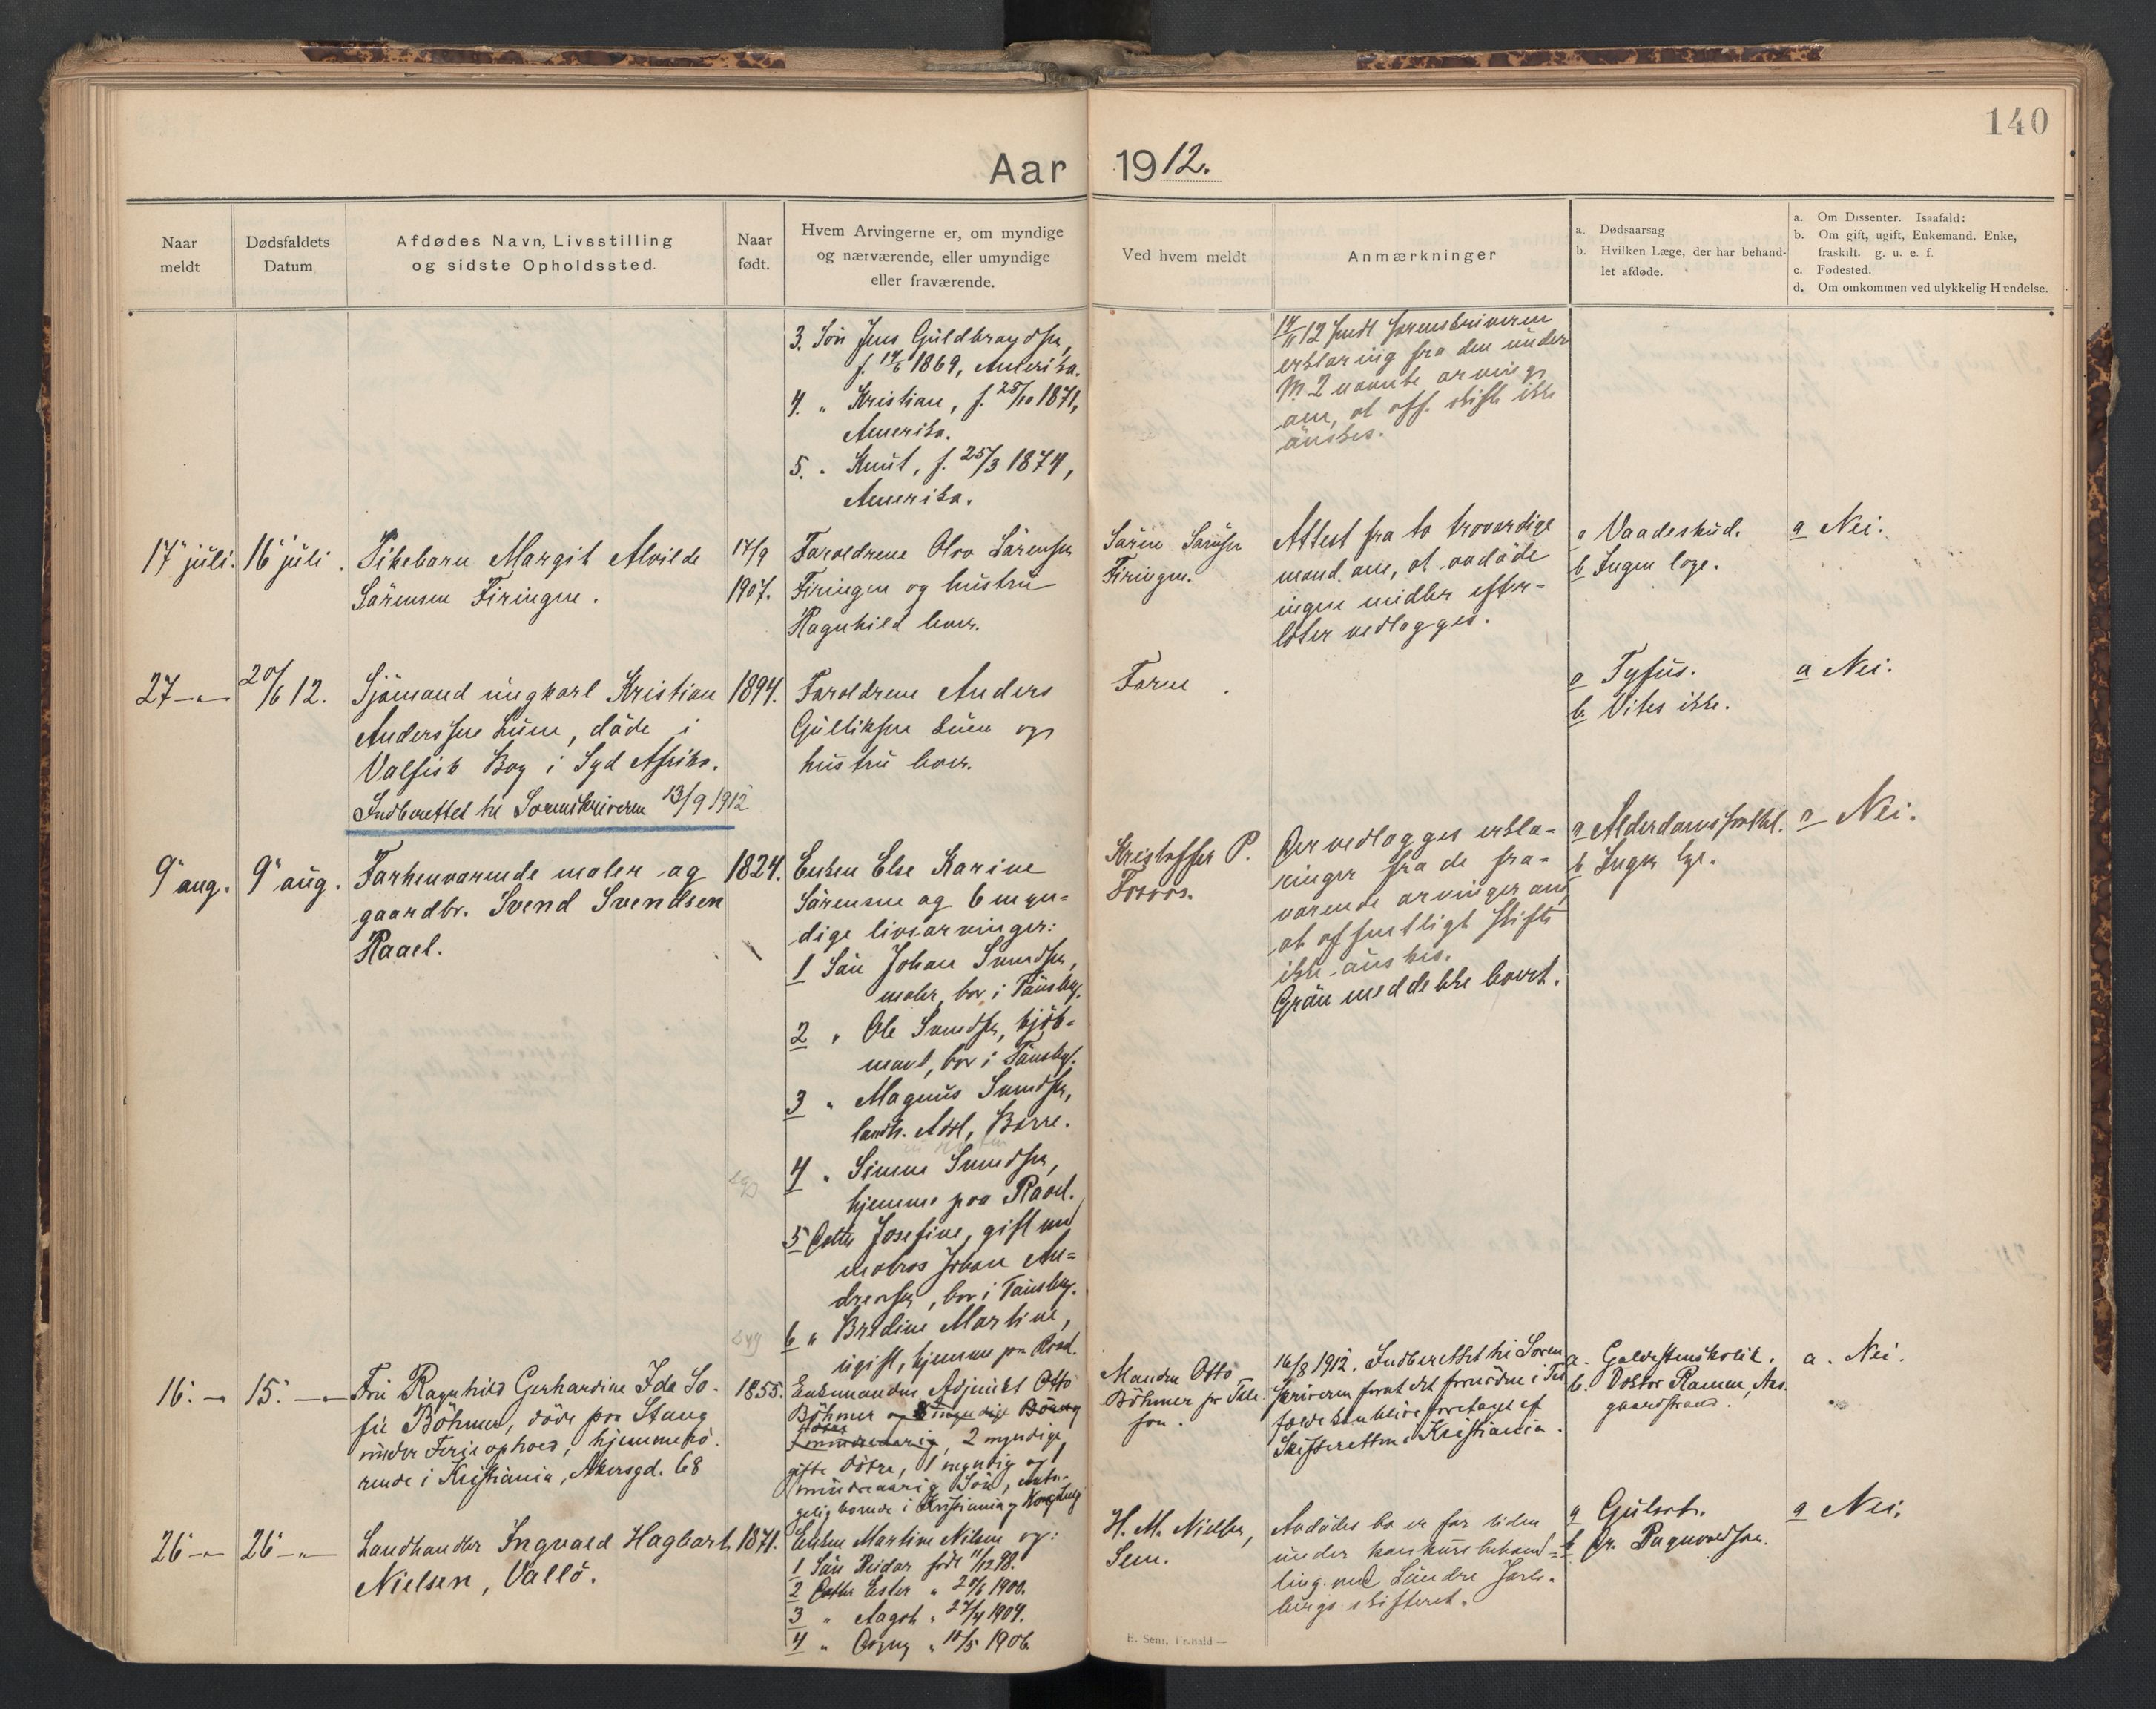 140
Aar 1912.
Naar meldt
Dødsfaldets Datum
Afdødes Navn, Livsstilling og sidste Opholdssted.
Naar født.
Hvem Arvingerne er, om myndige og nærværende, eller umyndige eller fraværende.
Ved hvem meldt
Anmærkninger
a. Dødsaarsag
b. Hvilken Læge, der har behandlet afdøde.
a. Om Dissenter. Isaafald:
b. Om gift, ugift, Enkemand, Enke, fraskilt. g. u. e. f.
c. Fødested.
d. Om omkommen ved ulykkelig Hændelse.
3. Sön Jens Guldbrandsen,
f. 14/6 1869, Amerika.
4. " Kristian, f. 28/10 1871,
Amerika.
5. " Knut, f. 25/3 1874,
Amerika.
14/11 12 sendt sorenskriveren
erklæring fra den under
nævnte arving
om, at off. skifte ikke
önskes.
17 juli.
16 juli.
Pikebarn Margit Alvilde
Sörensen Firingen.
17/9
1907.
Foræeldrene Olva Sörensen
Firingen og hustru
Ragnhild lever.
Sören Sörensen
Firingen.
Attest fra to troværdige
mænd om, at avdöde
ingen midler efter-
later vedlægges.
a Vaadeskud.
b Ingen læge.
a Nei.
27 — " —
20/6 12.
Sjömand ungkarl Kristian
Anderssen Luen, döde i
Valfisk Bay i Syd Afrika.
Indberettet til Sorenskriveren 13/9 1912
1894.
Forældrene Anders
Gulliksen Luen og
hustru lever.
Faren.
a Tyfus.
b. Vites ikke.
a Nei.
9 aug.
9 aug.
Forhenværende maler og
gaardbr. Svend Svendsen
Raael.
1824.
Enken Else Karine
Sörensen og 6 myn-
dige livsarvinger:
1 Sön Johan Svendsen,
maler, bor i Tönsberg.
2 " Ole Svendsen, kjöb-
mand, bor i Tönsbg.
3 " Magnus Svendsen,
landh. Adal, Borre.
4 " Simen Svendsen,
hjemme paa Raael.
5 Datter Josefine, gift med
matros Johan An-
dreasen, bor i Tönsberg.
6 " Bredine Martine,
ugift, hjemme paa Raael.
Kristoffer P.
Der vedlægges erklæ-
ringer fra de fra-
værende arvinger om,
at offentligt skifte
ikke önskes.
Gröu meddelelse levert.
a Alderdomssvakhet.
b Ingen læge.
a Nei.
16. — "
15. — "
Fru Ragnhild Gerhardine Ida So-
fie Böhmer, döde paa Stang
under Ferieophold, hjemmehö-
rende i Kristiania, Akersgd. 68
1855.
Enkemanden Adjunkt Otto
Böhmer
2 myndige
gifte Dötre, 1 myndig og 1
mindreaarig Sön,
boende i Kristiania og Kongsberg
Manden Otto
Böhmer pr Tele-
fon.
16/8 1912. Indberettet til Soren
skriveren forat det fornödne i Til-
fælde kan blive foretaget af
Skifteretten i Kristiania.
a. Galdestenskolik.
b. Doktor Ramm, Aas-
gaardstrand.
a. Nei.
26 — "
26 — "
Landhandler Ingvald Hagbart
Nielsen, Vallö.
1871.
Enken Martine Nilsen og:
1 Sön Reidar född 11/12 98.
2 Datter Ester " 29/6 1900.
3 " Aagot " 27/4 1904.
4 " Dagny " 10/5 1906.
H. M. Nielsen,
Sem.
Avdödes bo er for tiden
under konkursbehand-
ling ved Söndre Jarls-
bergs skifteret.
a Gulsot.
b Dr. Ragnvaldsen.
a Nei.
E. Sem, Fr.hald —